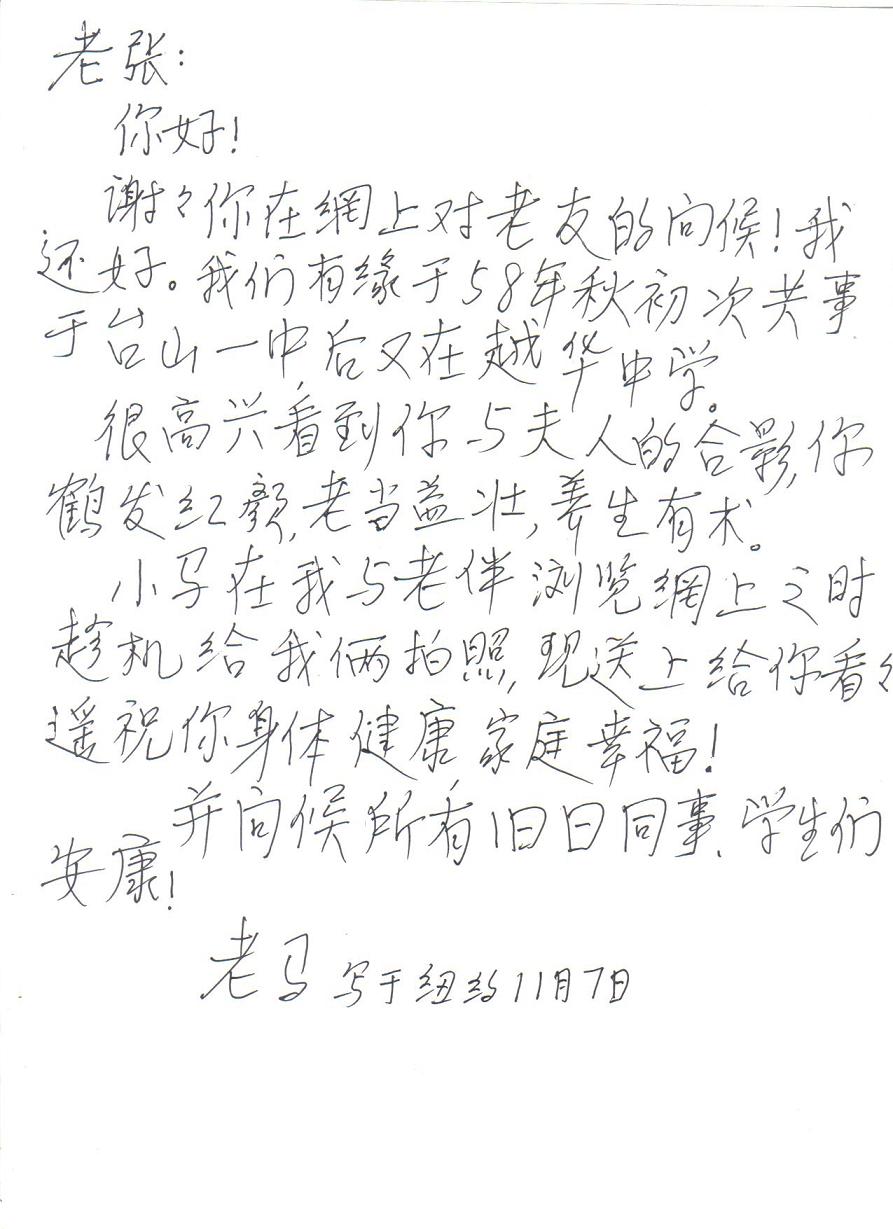 老张:
你好!
谢々你在網上对老友的问候!我
还好。我们有缘于58年秋初次共事
于台山一中后又在越华中学。
很高兴看到你与夫人的合影,你
鹤发红颜,老当益壮,养生有术。
小马在我与老伴浏览網上之时
趁机给我俩拍照,现送上给你看々
遥祝你身体健康家庭幸福!
并问候所有旧日同事.学生们
安康!
老马写于纽约11月7日